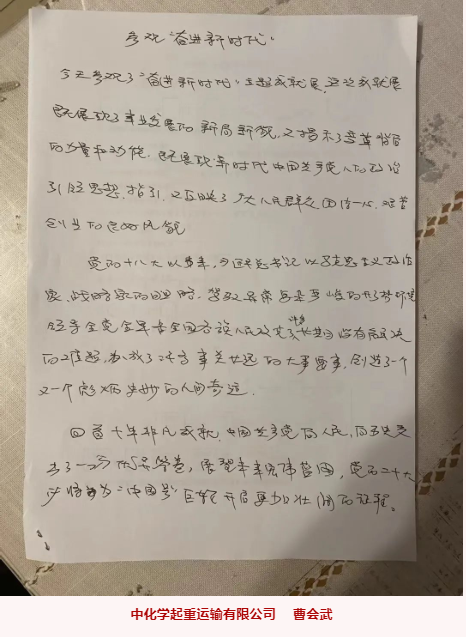 参观“奋进新时代”
今天参观了“奋进新时代”主题成就展，这次成就展
既展现了事业发展的新局新貌，又揭示了变革背后
的力量和功能。既展现新时代中国共产党人的政治
引领思想指引，又反映了广大人民群众团结一心，
创造的良好风貌
党的十八大以来，习近平总书记以马克思主义政治
家、战略家的
领导全党全军全国各族人民，长期没有解决
的难题，办成了许多事关长远的大事要事，创造了一个
又一个彪炳史册的人间奇迹
回首十年非凡成就，中国共产党向人民，向历史交
出了一份优异答卷，展望未来宏伟蓝图，党的二十大
必将为“中国号”巨轮开启更加壮阔的征程。
中化学起重运输有限公司 曹会武